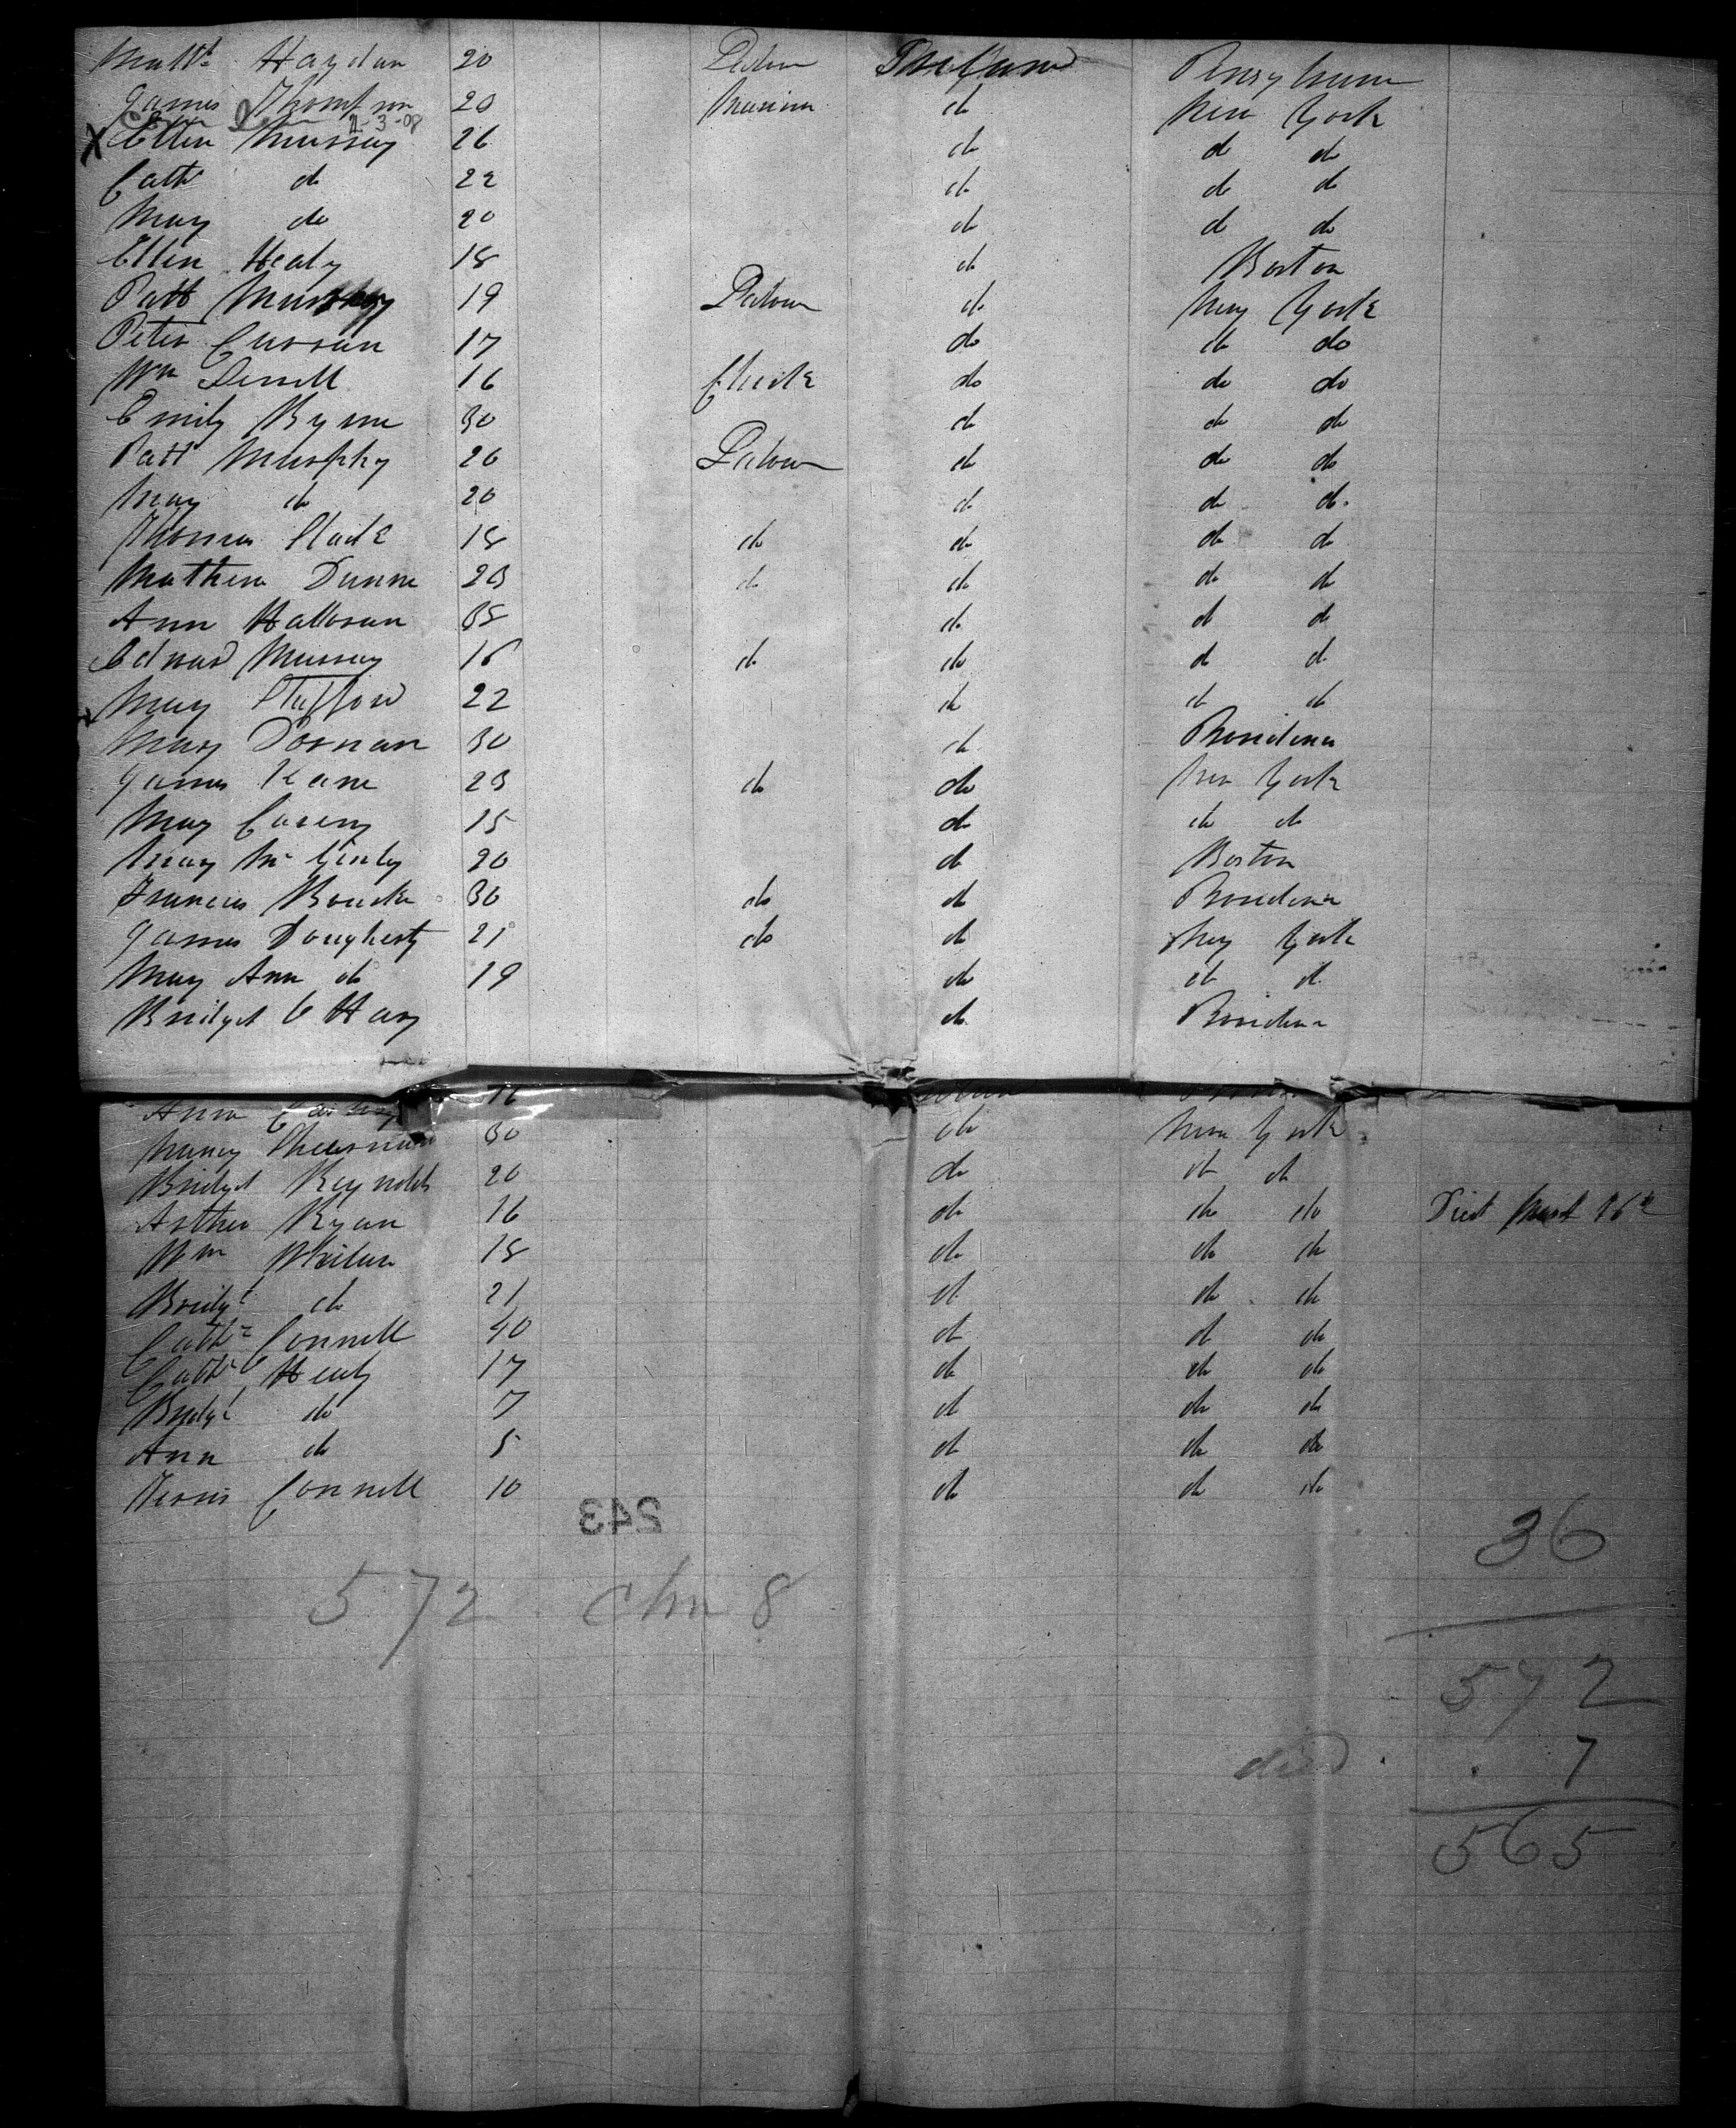 Matt Haydan 20 Labour Ireland
James Thompson 20 do New York
2-3-08
X Ellen Murray 26 do do do
Cath do 22 do do do
Mary do 20 do do do
Ellen Healy 18 do Boston
Patt Murray 19 Labour do New York
Peter Curran 17 do do do
Wm 16 Clerk do do do
Emily Byrne 30 do do do
Patt Murphy 20 Labour do do do
Mary do 20 do do do
Thomas 18 do do do do
Mathew Dunne 23 do do do do
Ann Halloran 35 do do do
Edward Murray 16 do do do do
Mary Stafford 22 do do do
Mary Dornan 30 do Providence
James Kane 23 do do New York
Mary Carey 15 do do do
Mary Mc Ginly 20 do Boston
Francis Bourke 30 do do Providence
James Dougherty 21 do do New York
Mary Ann do 19 do do do
Bridget O Hary do Providence
Ann 16
Nancy 30 do New York
Bridget Reynolds 20 do do do
Arther Ryan 16 do do do Died 16th
Wm Whelan 18 do do do
Bridgt do 21 do do do
Cathe Connell 40 do do do
Cathe Healy 17 do do do
Bridgt do 7 do do do
Ann do 5 do do do
Connell 10 do do do
243
36
572 8
572
died 7
565